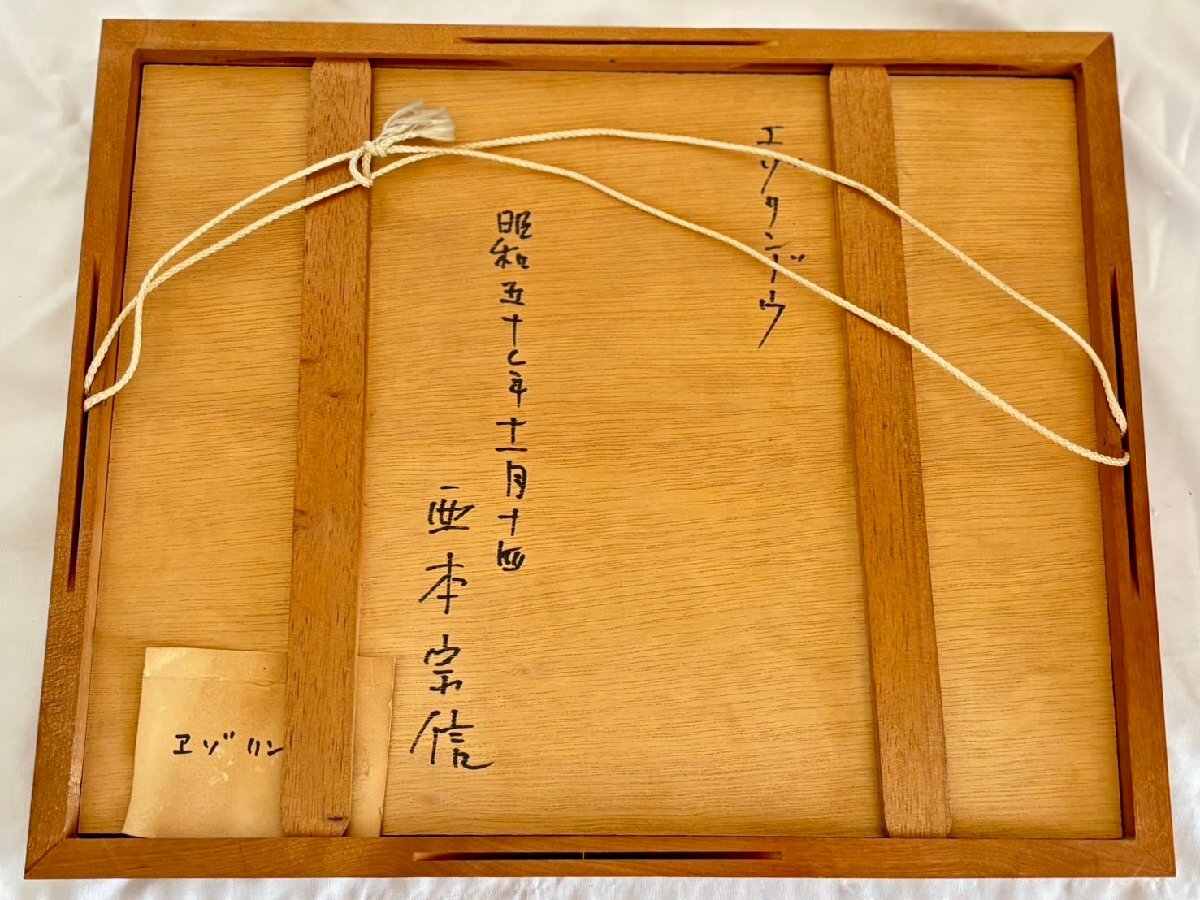 エゾリンドウ
昭和五十七年十一月十四
西本宗信
ヱゾリン